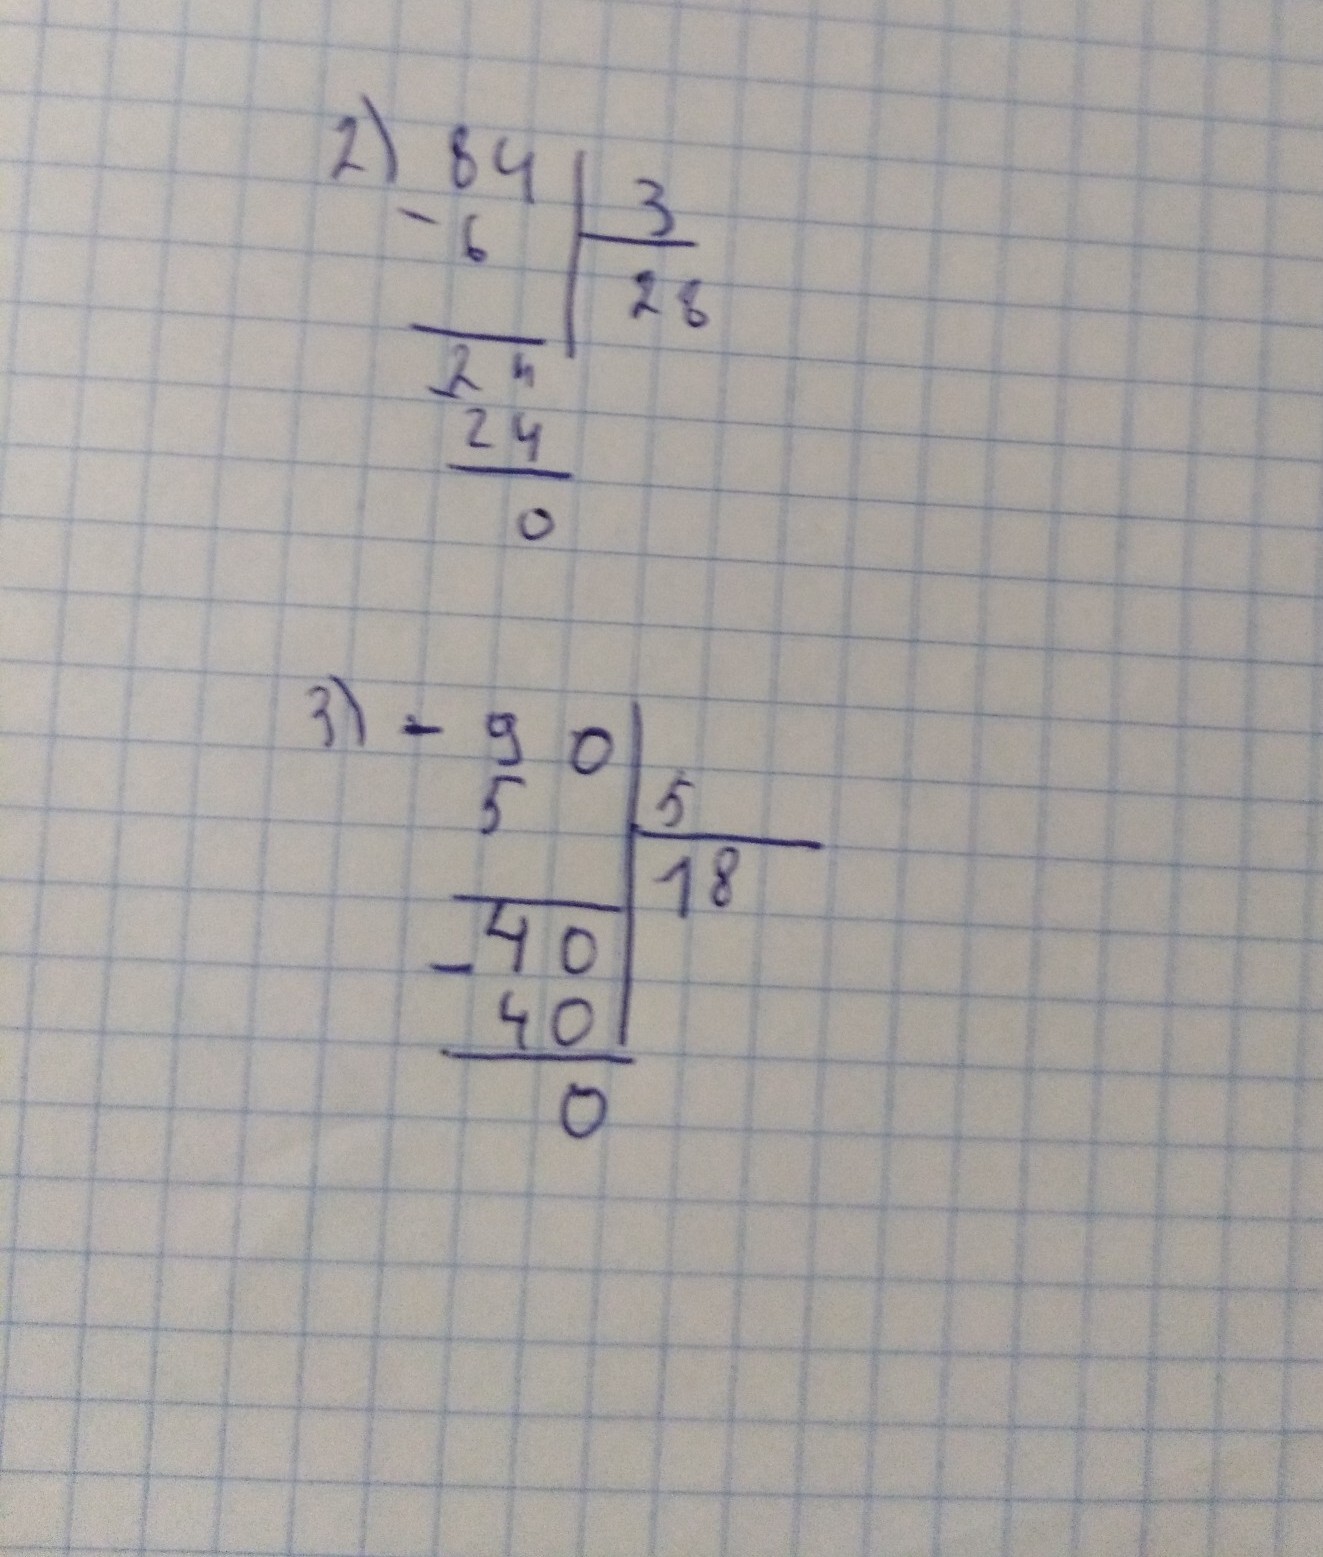 2) 84 3
- 6 28
- 24
24
0
3) - 90
5 5
18
- 40
40
0